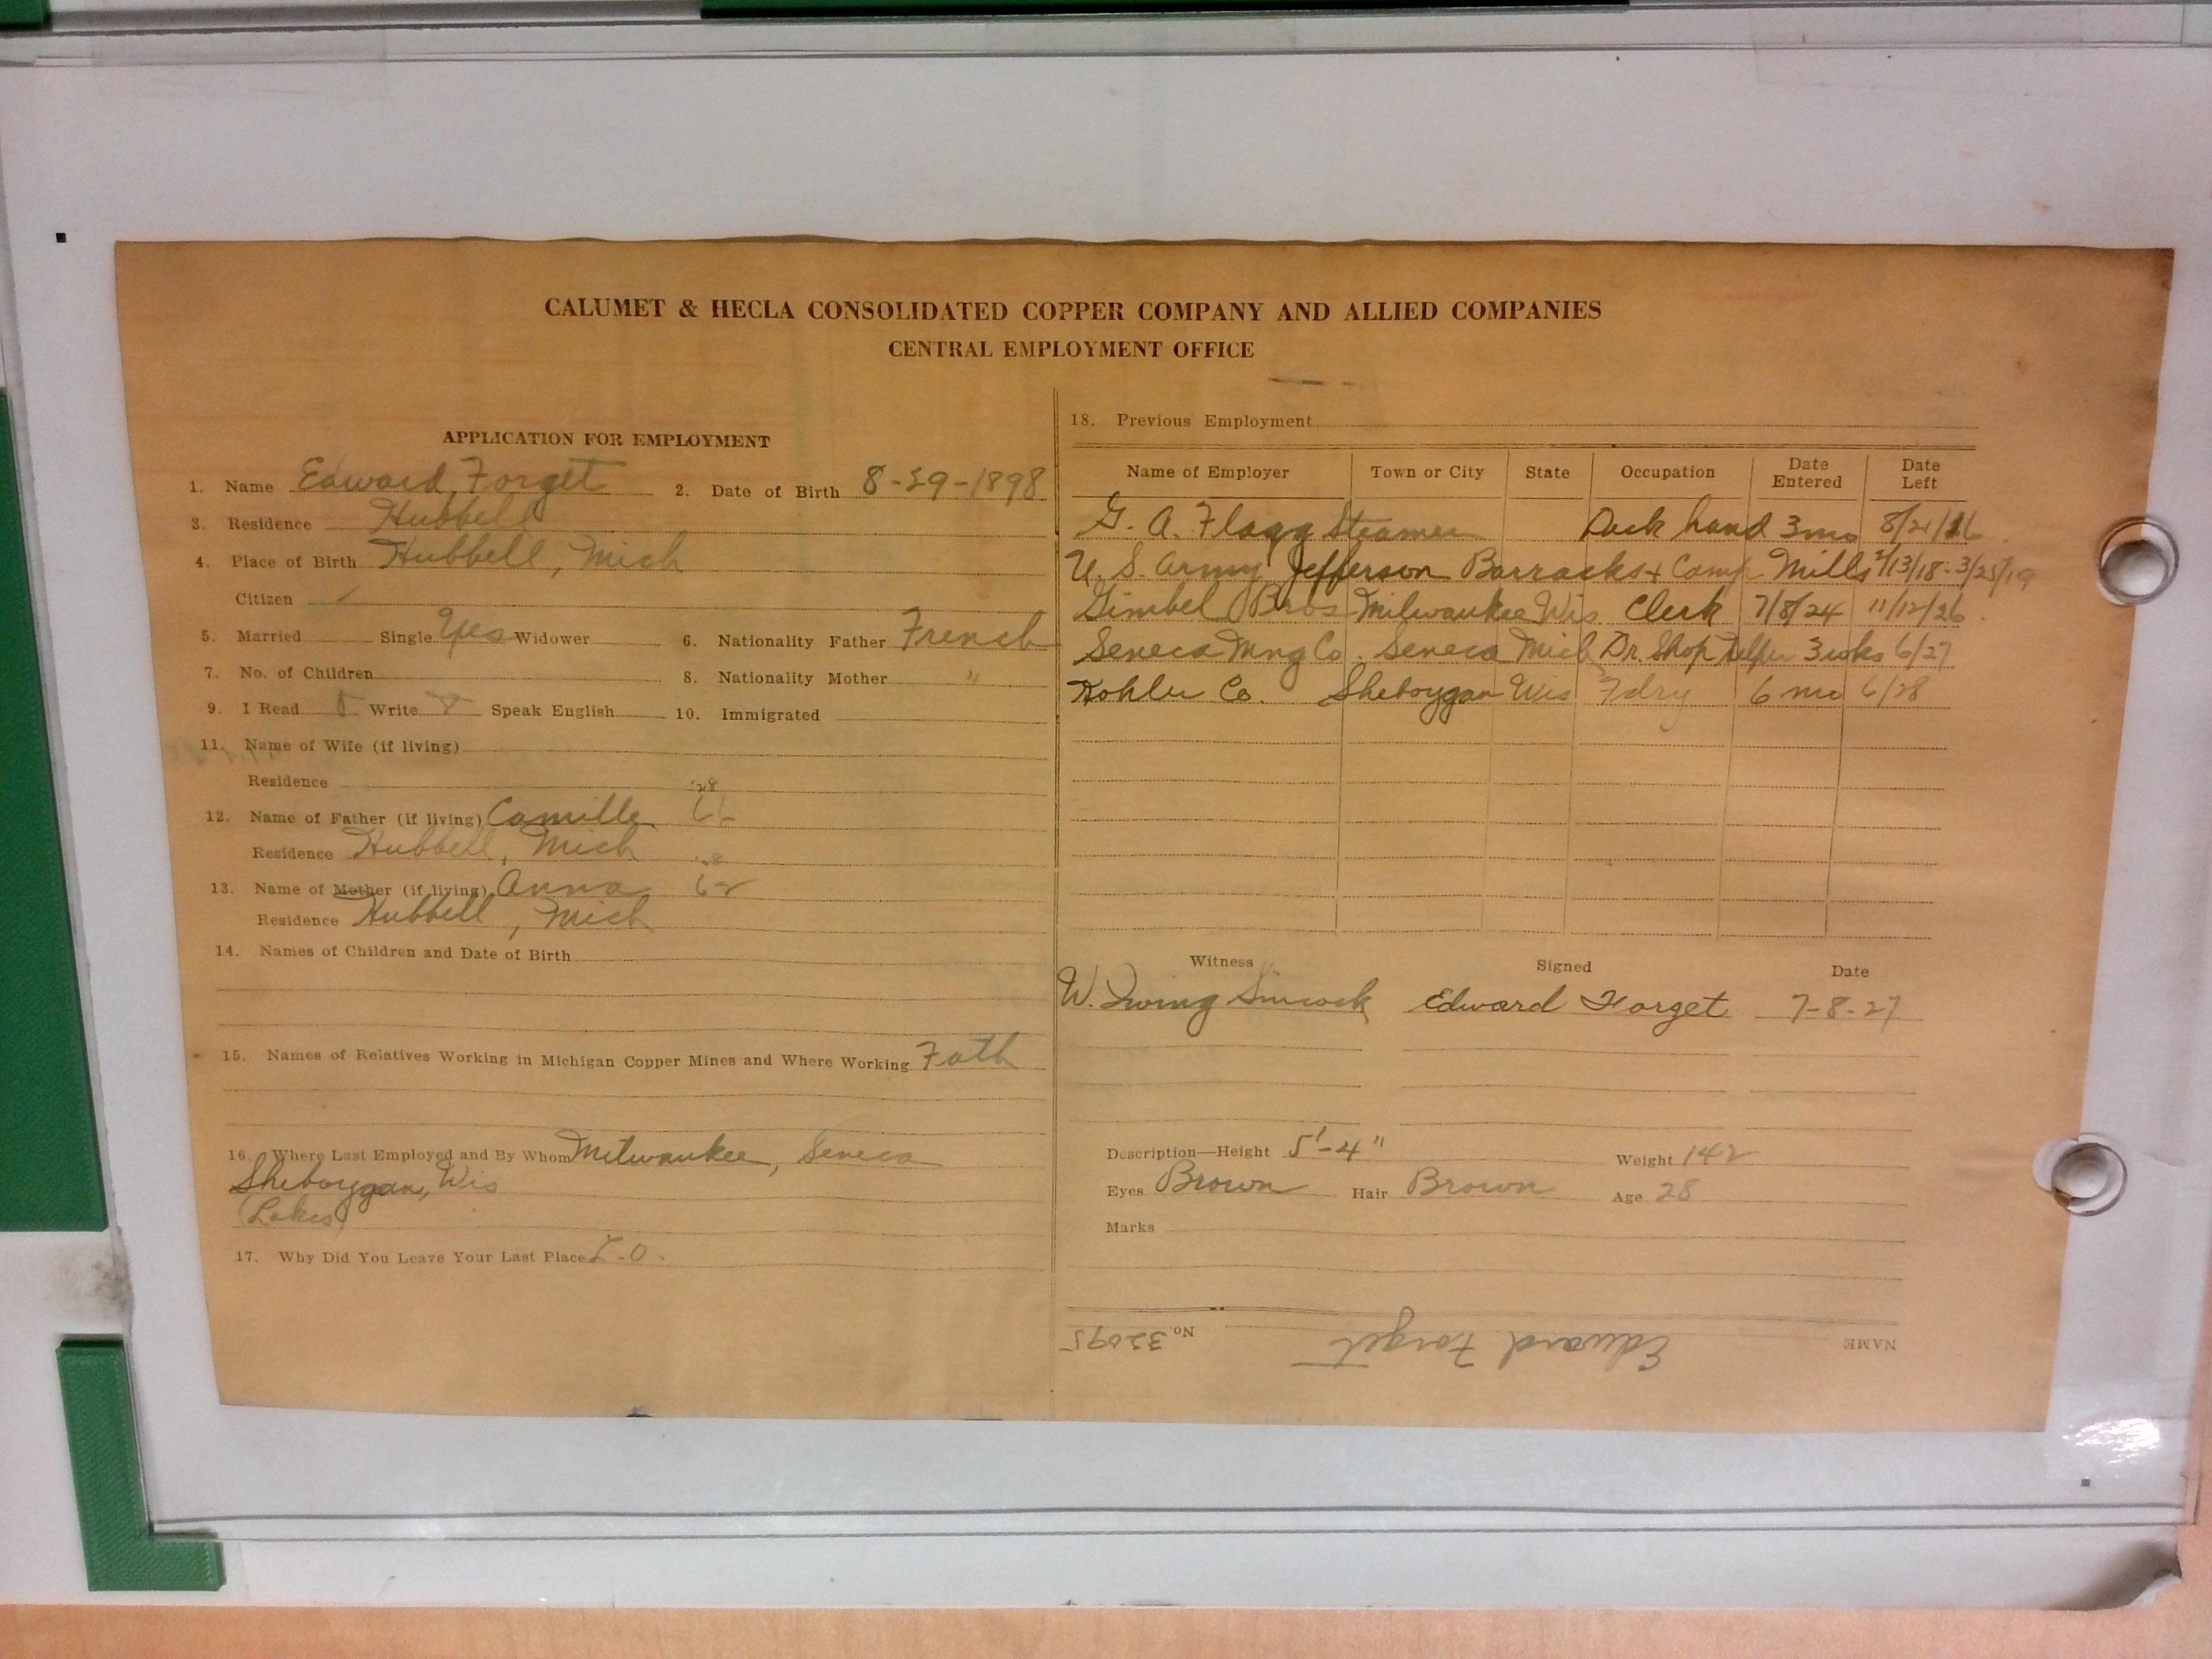 CALUMET & HECLA CONSOLIDATED COPPER COMPANY AND ALLIED COMPANIES
CENTRAL EMPLOYMENT OFFICE
APPLICATION FOR EMPLOYMENT
1. Name Edward Forget 2. Date of Birth 8-29-1898
3. Residence Hubbell
4. Place of Birth Hubbell, Mich
Citizen ✓
5. Married Single Yes Widower 6. Nationality Father French
7. No. of Children 8. Nationality Mother "
9. I Read Write Speak English 10. Immigrated
11. Name of Wife (if living)
Residence
'28
12. Name of Father (if living) Camille
Residence Hubbell, Mich
'28
13. Name of Mother (if living) Anna 62
Residence Hubbell, Mich
14. Names of Children and Date of Birth
15. Names of Relatives Working in Michigan Copper Mines and Where Working Fath
16. Where Last Employed and By Whom Milwaukee, Seneca
Sheboygan, Wis
(Lakes)
17. Why Did You Leave Your Last Place
18. Previous Employment
Name of Employer Town or City State Occupation Date Entered Date Left
G. A. Flagg Steamer Deck hand 3 mo 8/21/26
U. S. Army Jefferson Barracks + Camp Mills /13/18 - 3/25/19
Gimbel Bros Milwaukee Wis Clerk 7/8/24 11/12/26
Seneca Mng Co. Seneca Mich Dr. Shop Helper 3 wks 6/27
Kohler Co. Sheboygan Wis Fdry 6 mo 6/28
Witness Signed Date
W. Irwing Simcock Edward Forget 7-8-27
Description—Height 5'-4" Weight 142
Eyes Brown Hair Brown Age 28
Marks
NAME Edward Forget No. 32095